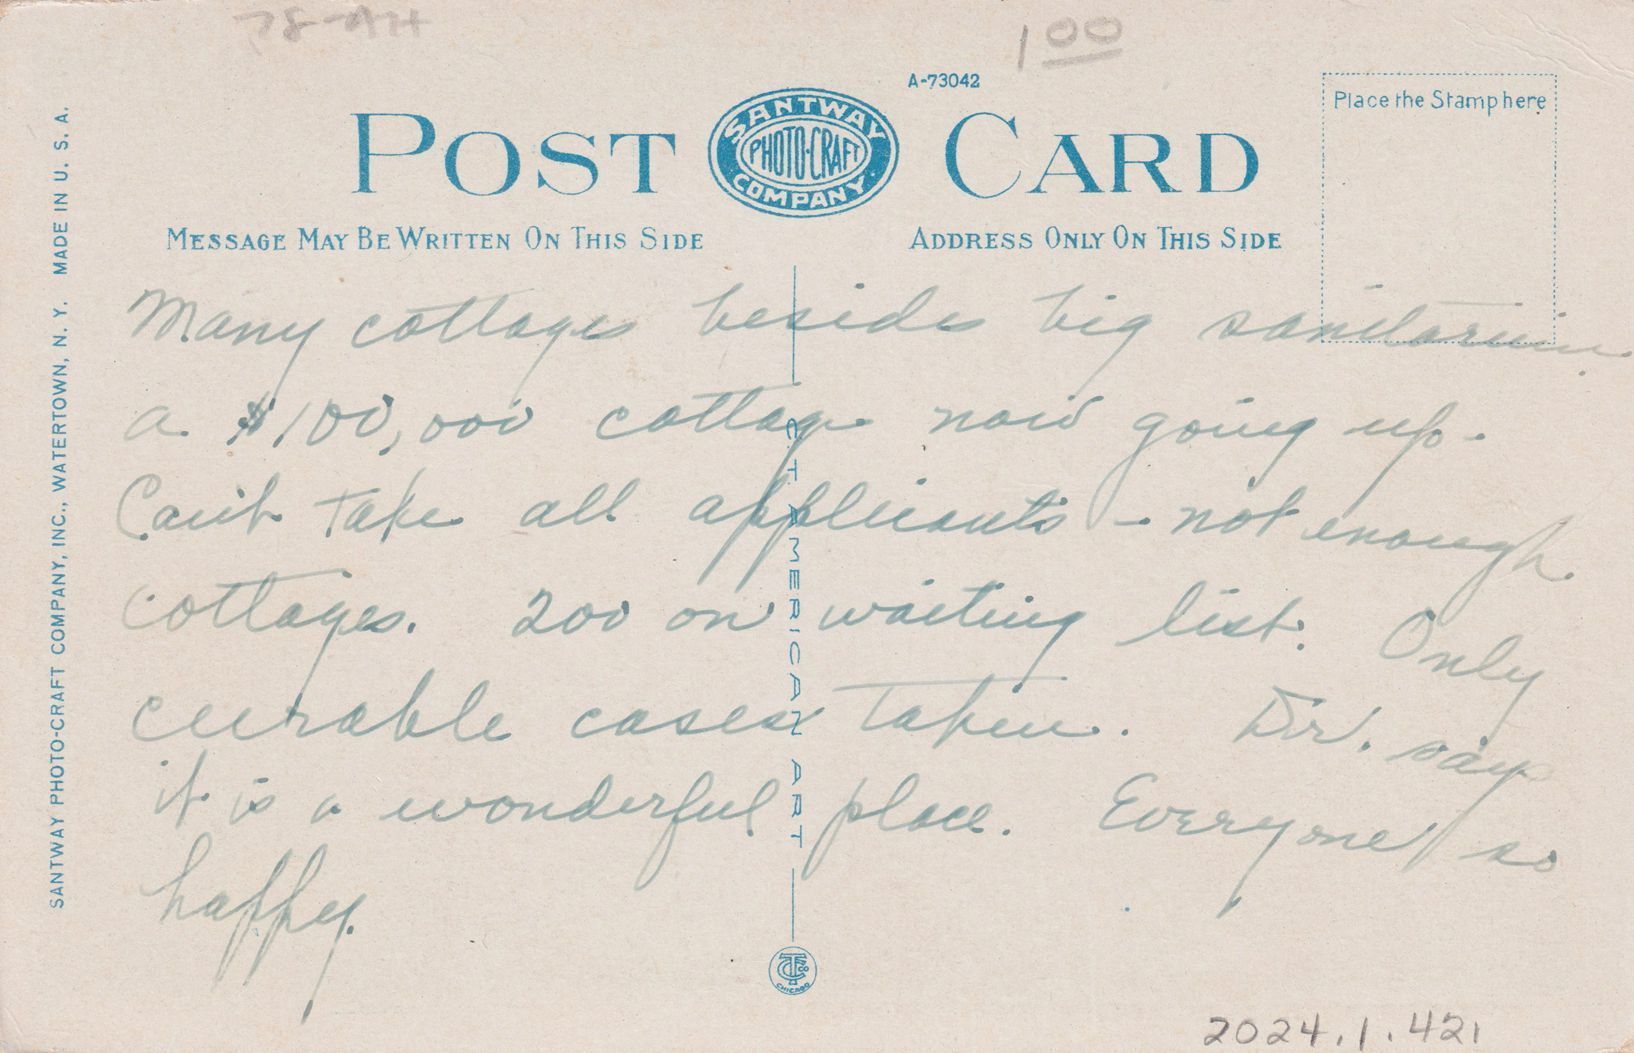 78-AH
1 00
A-73042
Place the Stamp here
POST CARD
SANTWAY
PHOTO-CRAFT
COMPANY
MESSAGE MAY BE WRITTEN ON THIS SIDE
ADDRESS ONLY ON THIS SIDE
SANTWAY PHOTO-CRAFT COMPANY, INC., WATERTOWN, N. Y. MADE IN U. S. A.
Many cottages besides big sanitarium
a $100,000 cottage now going up.
Can't take all applicants - not enough
cottages. 200 on waiting list. Only
curable cases taken. Drs. say
it is a wonderful place. Everyone so
happy.
C.T. AMERICAN ART
CHICAGO
2024.1.421